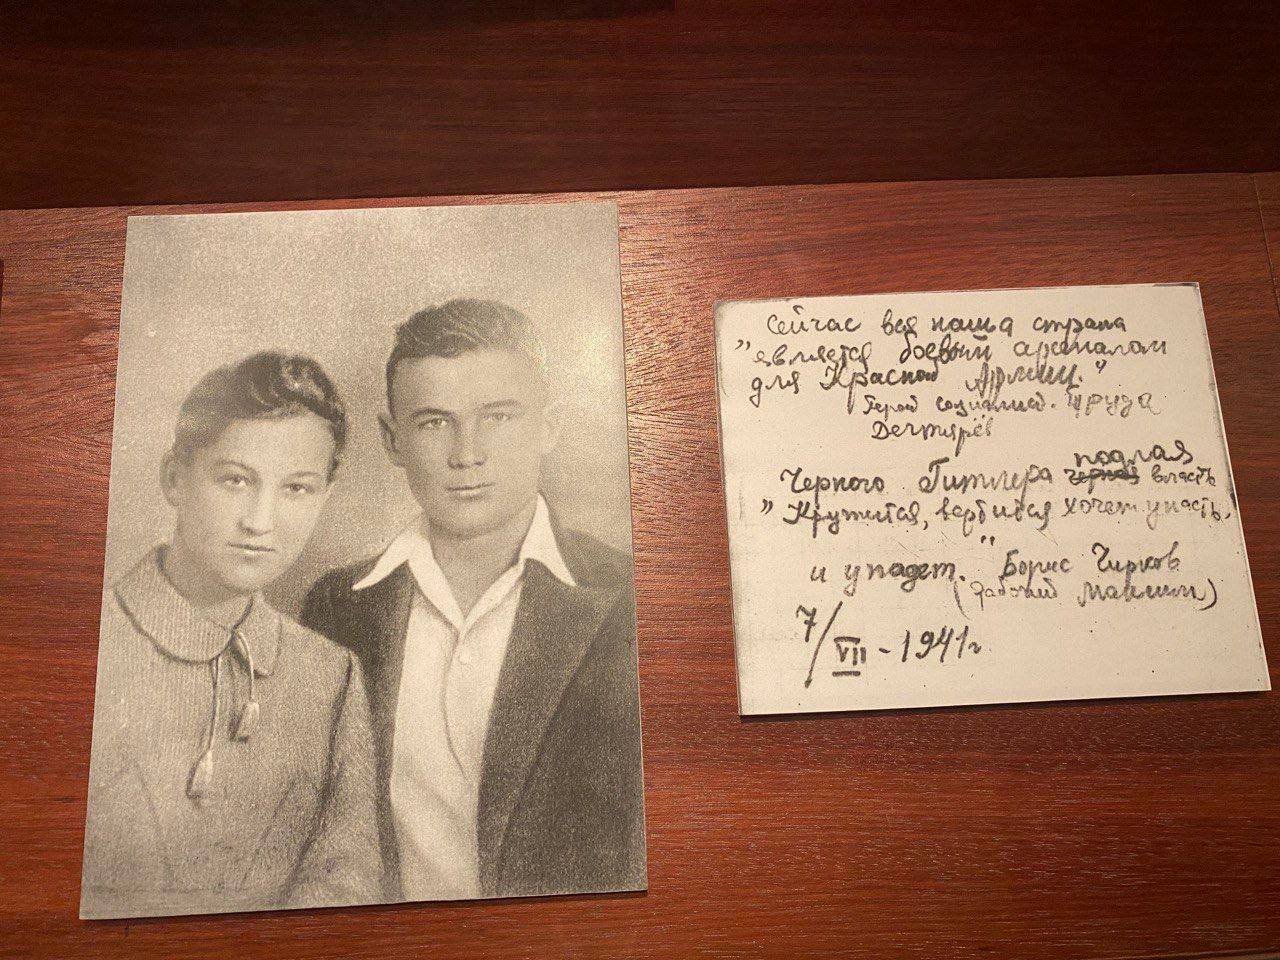 Сейчас вся наша страна
"является боевым арсеналом
для Красной Армии."
Герой социалист. Труда
Дегтярёв
подлая
Черного Гитлера черная власть
"Кружится, вертится хочет упасть,
и упадет." Борис Чирков
(рабочий Максим)
7/VII - 1941 г.